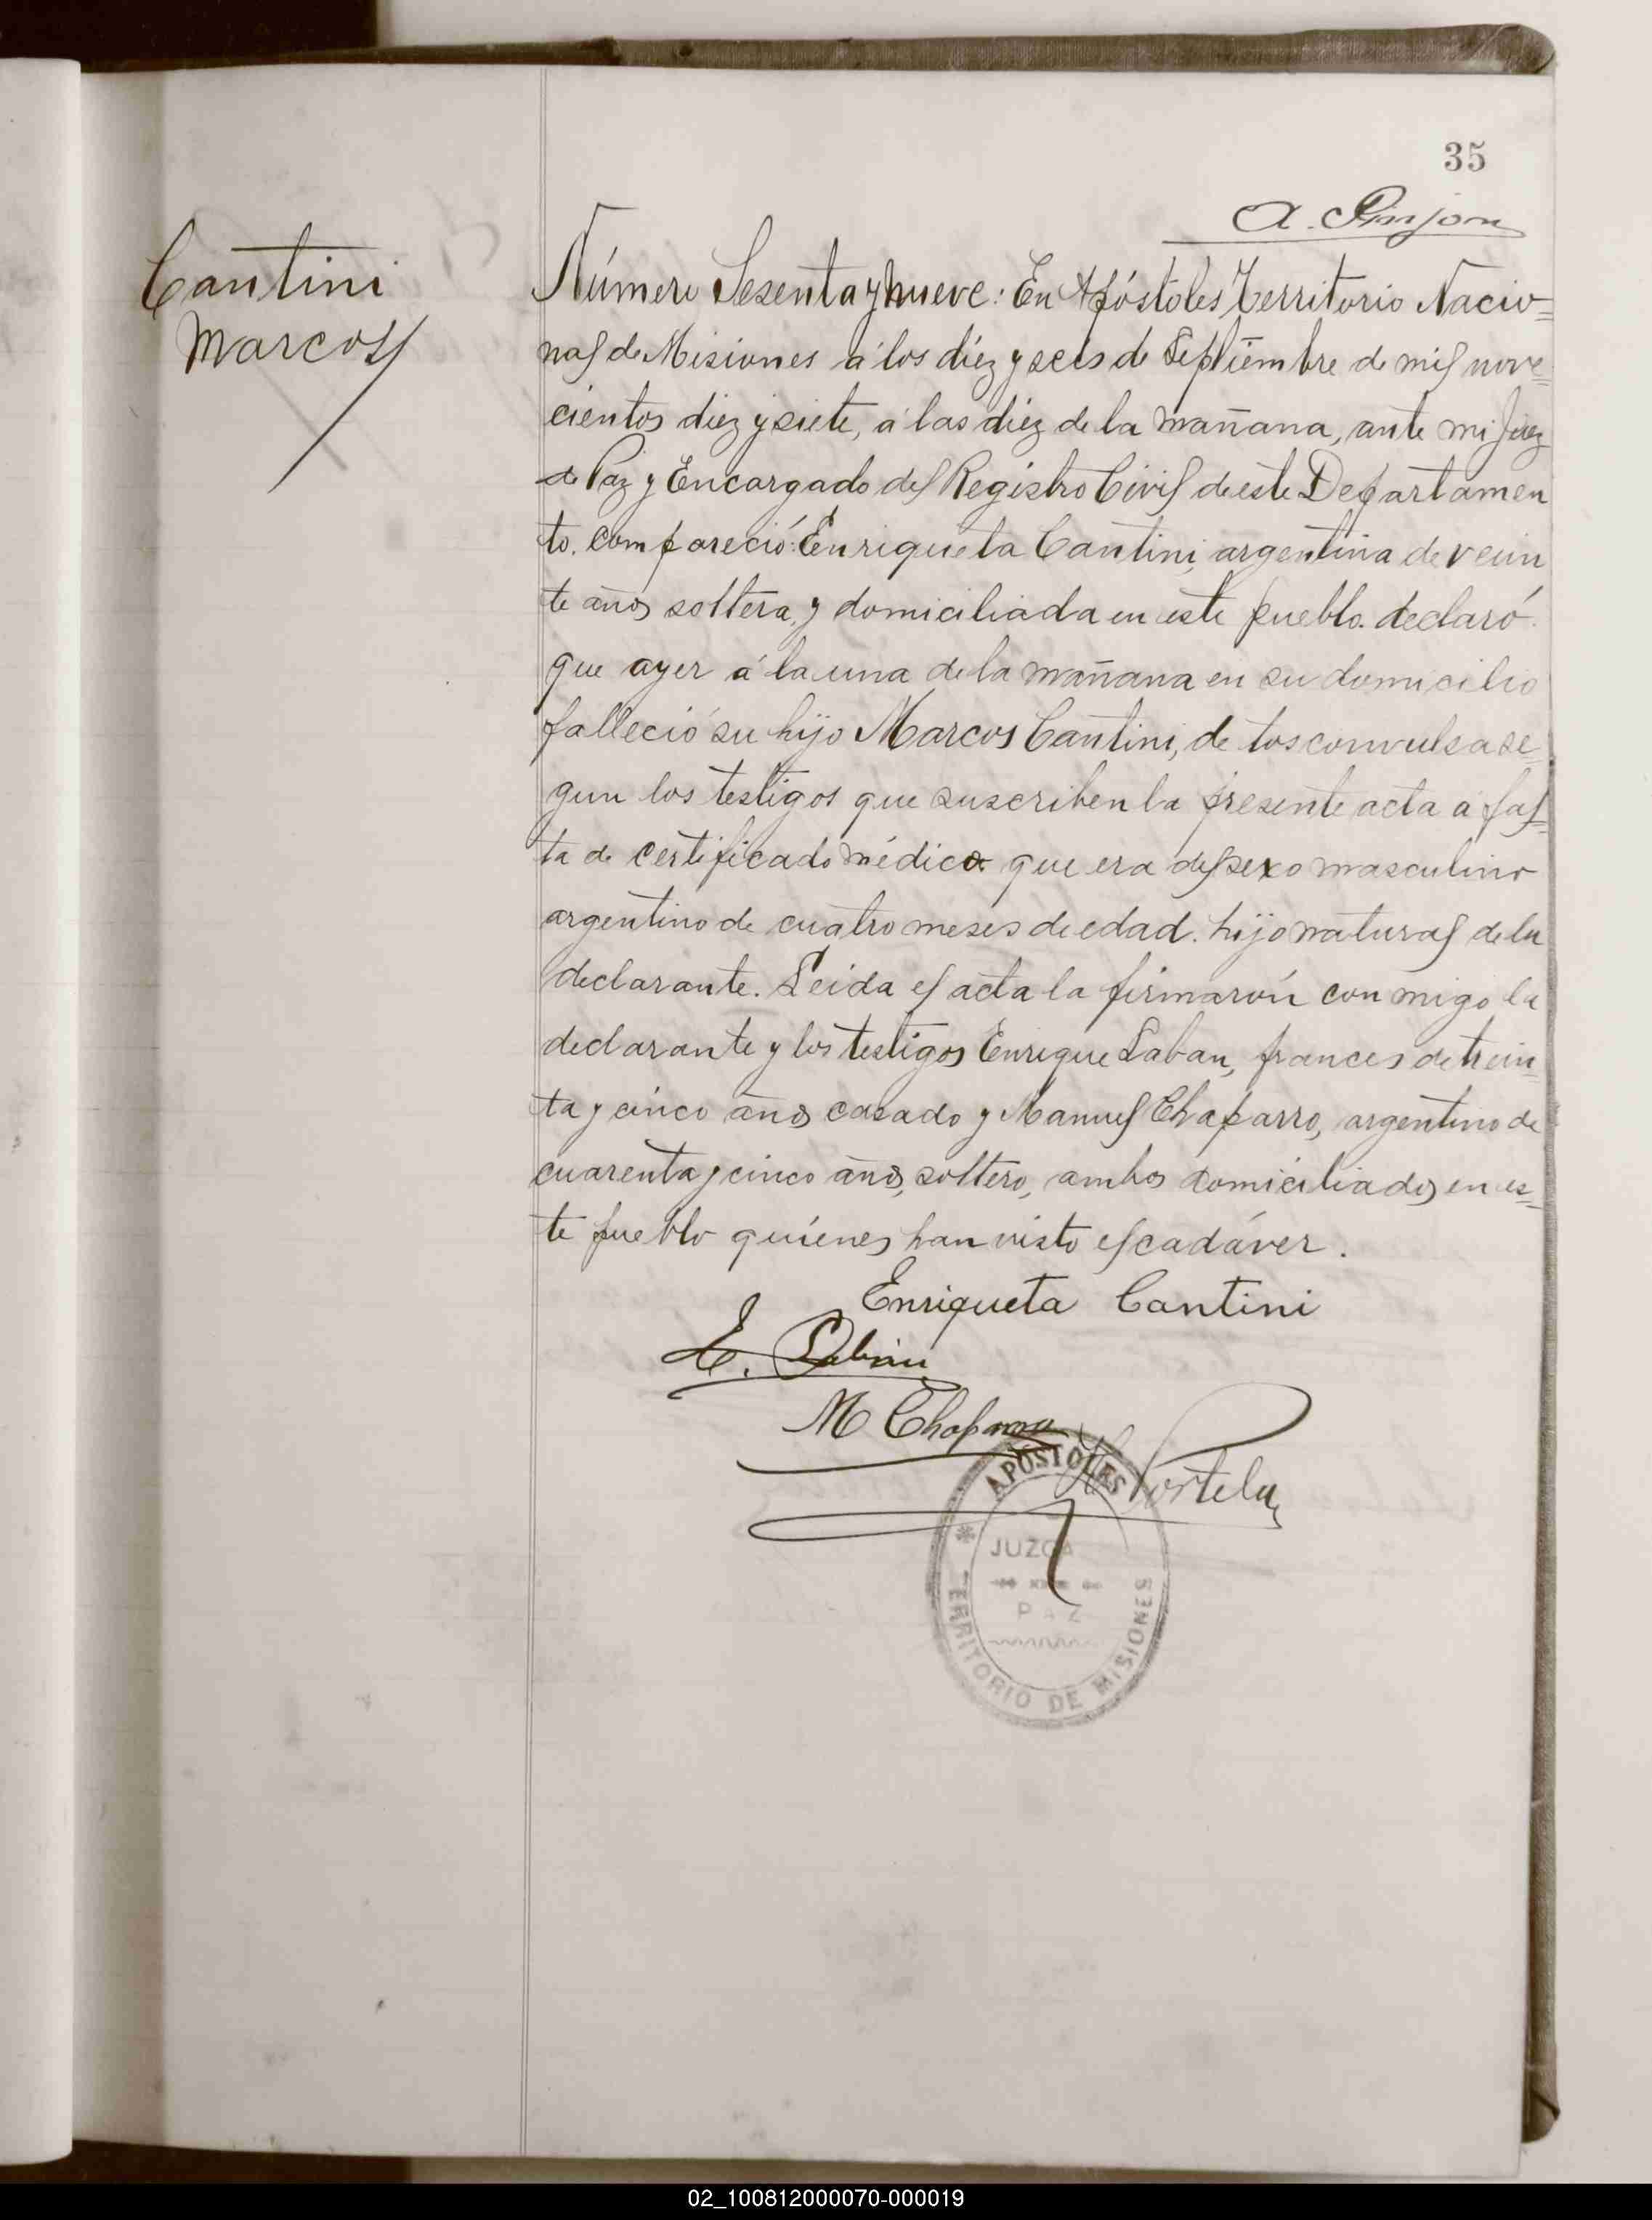 35
Cantini
Marcos
Número Sesenta y nueve: En Apóstoles Territorio Nacio=
nal de Misiones á los diez y seis de Septiembre de mil nove=
cientos diez y siete, á las diez de la mañana, ante mi Juez
de Paz y Encargado del Registro Civil de este Departamen
to. compareció: Enriqueta Cantini, argentina de vein
te años soltera, y domiciliada en este pueblo. declaró.
que ayer á la una de la mañana en su domicilio
falleció su hijo Marcos Cantini, de tos convulsa se=
gun los testigos que suscriben la presente acta á fal=
ta de certificado médico que era del sexo masculino
argentino de cuatro meses de edad. hijo natural de la
declarante. Leida el acta la firmarón con migo la
declarante y los testigos Enrique Laban, frances de trein=
ta y cinco años casado y Manuel Chaparro, argentino de
cuarenta y cinco años, soltero, ambos domiciliados en es=
te pueblo quiénes han visto el cadáver.
Enriqueta Cantini
E. Laban
M Chaparro
Portela
APOSTOLES
JUZGA
PAZ
TERRITORIO DE MISIONES
02_100812000070-000019